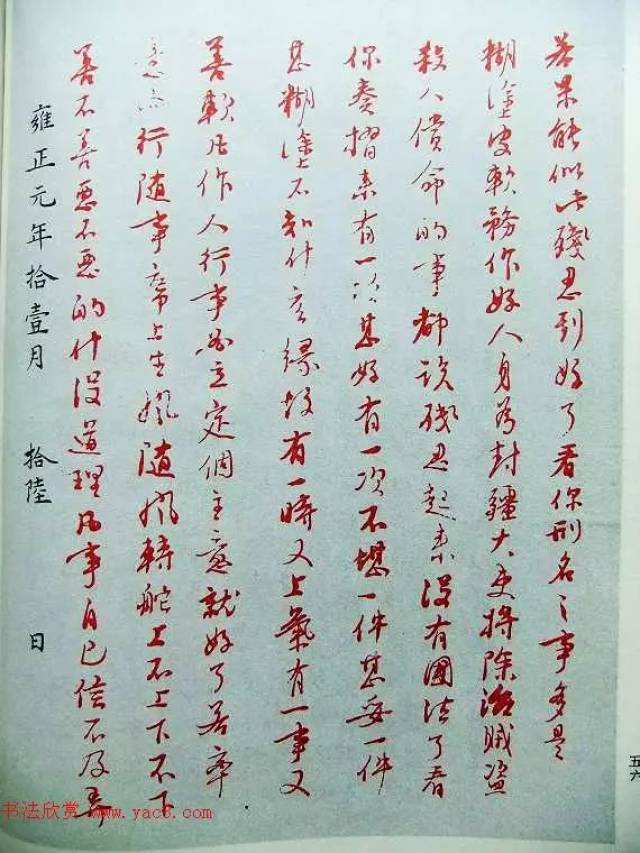 若果能似此殘忍到好了看你刑名之事多是
糊塗皮軟務作好人身為封疆大吏將除治賊盜
殺人償命的事都談殘忍起來没有國法了看
你奏摺来有一次甚好有一次不堪一件甚妥一件
甚糊塗不知什么緣故有一時又上氣有一事又
善軟凡作人行事必立定個主意就好了若率
意而行随事席上生風随風轉舵上不上下不下
善不善惡不惡的什没道理凡事自己信不及
雍正元年拾壹月 拾陸 日
五六
书法欣赏 www.yac8.com